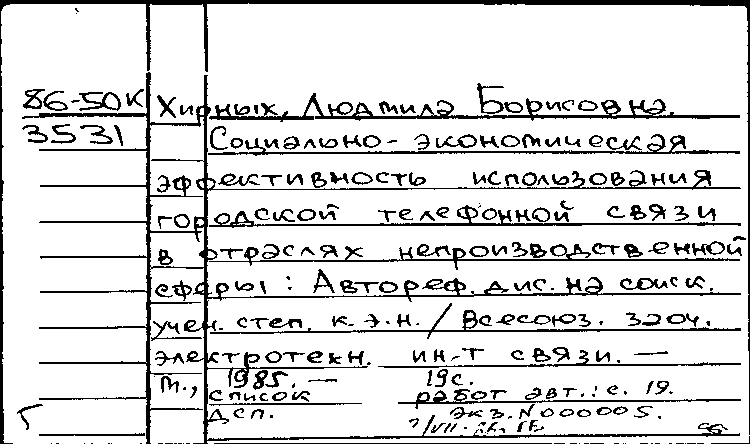 86-50К Хирных, Людмила Борисовна.
3531 Социально-экономическая
эффективность использования
городской телефонной связи
в отраслях непроизводственной
сферы: Автореф. дис. на соиск.
учен. степ. к.э.н. / Всесоюз. заоч.
электротехн. ин-т связи. —
М., 1985. — 19с.
список работ авт.: с. 19.
Дсп. Экз. N000005.
Г